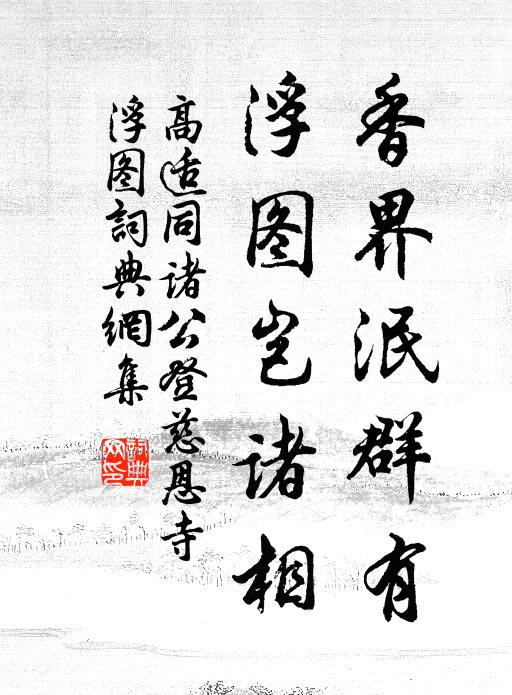 香界泯群有
浮图岂诸相
高适同诸公登慈恩寺
浮图詞典網集
詞典网印